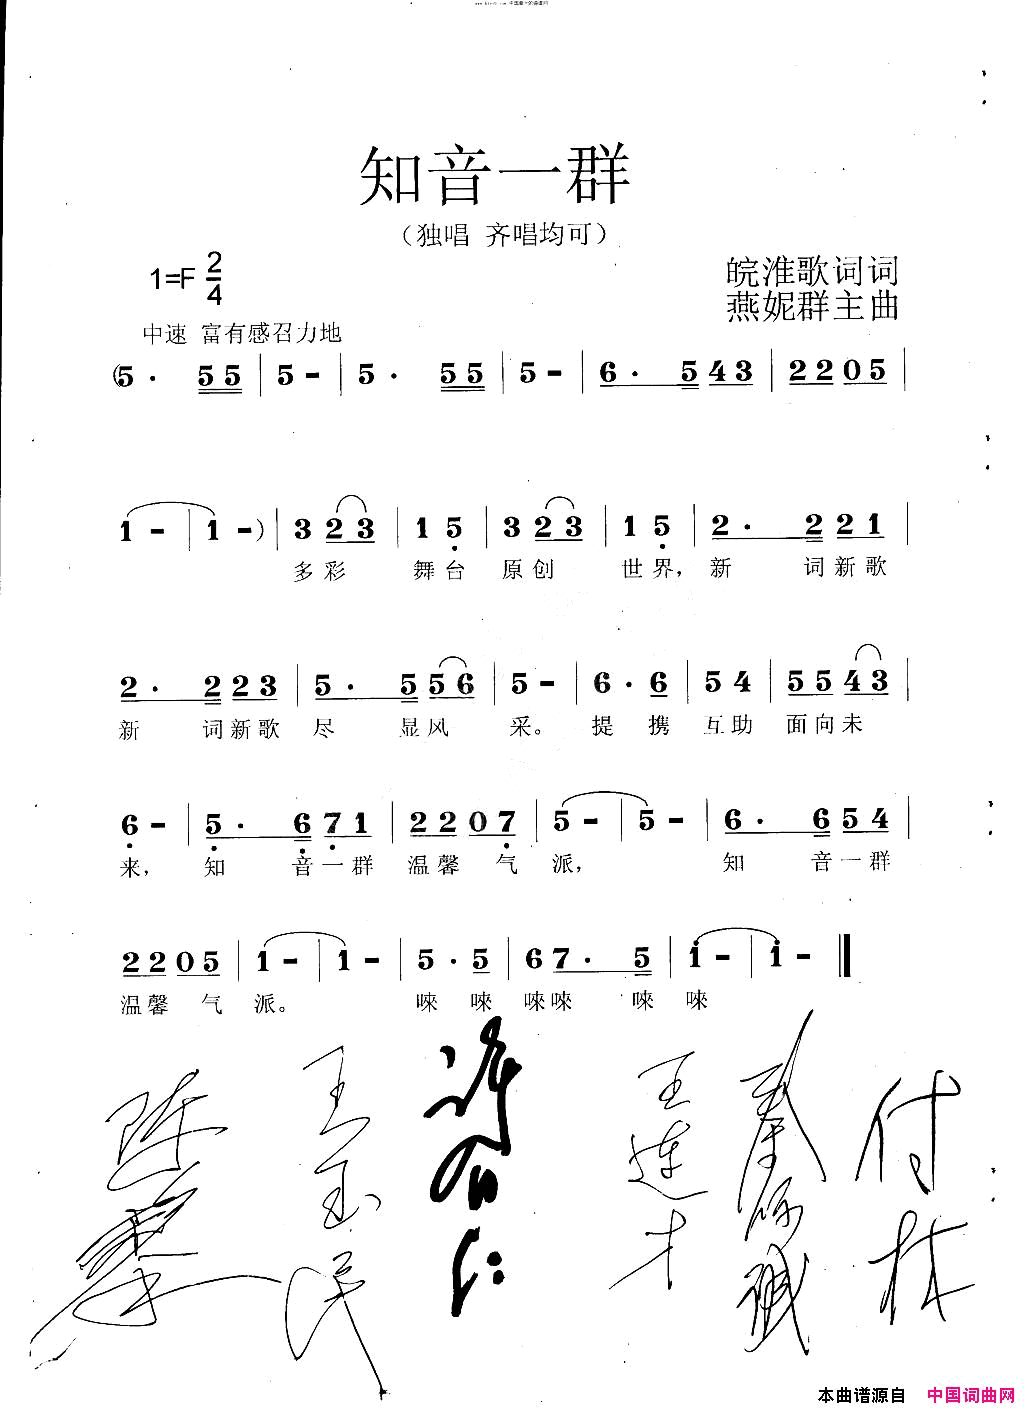 知音一群
（独唱 齐唱均可）
1=F 2/4
皖淮歌词词
燕妮群主曲
中速 富有感召力地
(5 · 55 | 5 - | 5 · 55 | 5 - | 6 · 543 | 2205 |
1 - | 1 - ) | 3 23 | 1 5 | 3 23 | 1 5 | 2 · 221 |
多彩 舞台 原创 世界，新 词新歌
2 · 223 | 5 · 556 | 5 - | 6 · 6 | 5 4 | 5543 |
新 词新歌 尽 显风 采。 提 携 互助 面向未
6 - | 5 · 671 | 2207 | 5 - | 5 - | 6 · 654 |
来， 知 音一群 温馨 气 派， 知 音一群
2205 | 1 - | 1 - | 5 · 5 | 67 · 5 | 1 - | 1 - ‖
温馨 气 派。 唻 唻 唻唻 唻 唻
王玉民
王连才
付林
本曲谱源自 中国词曲网